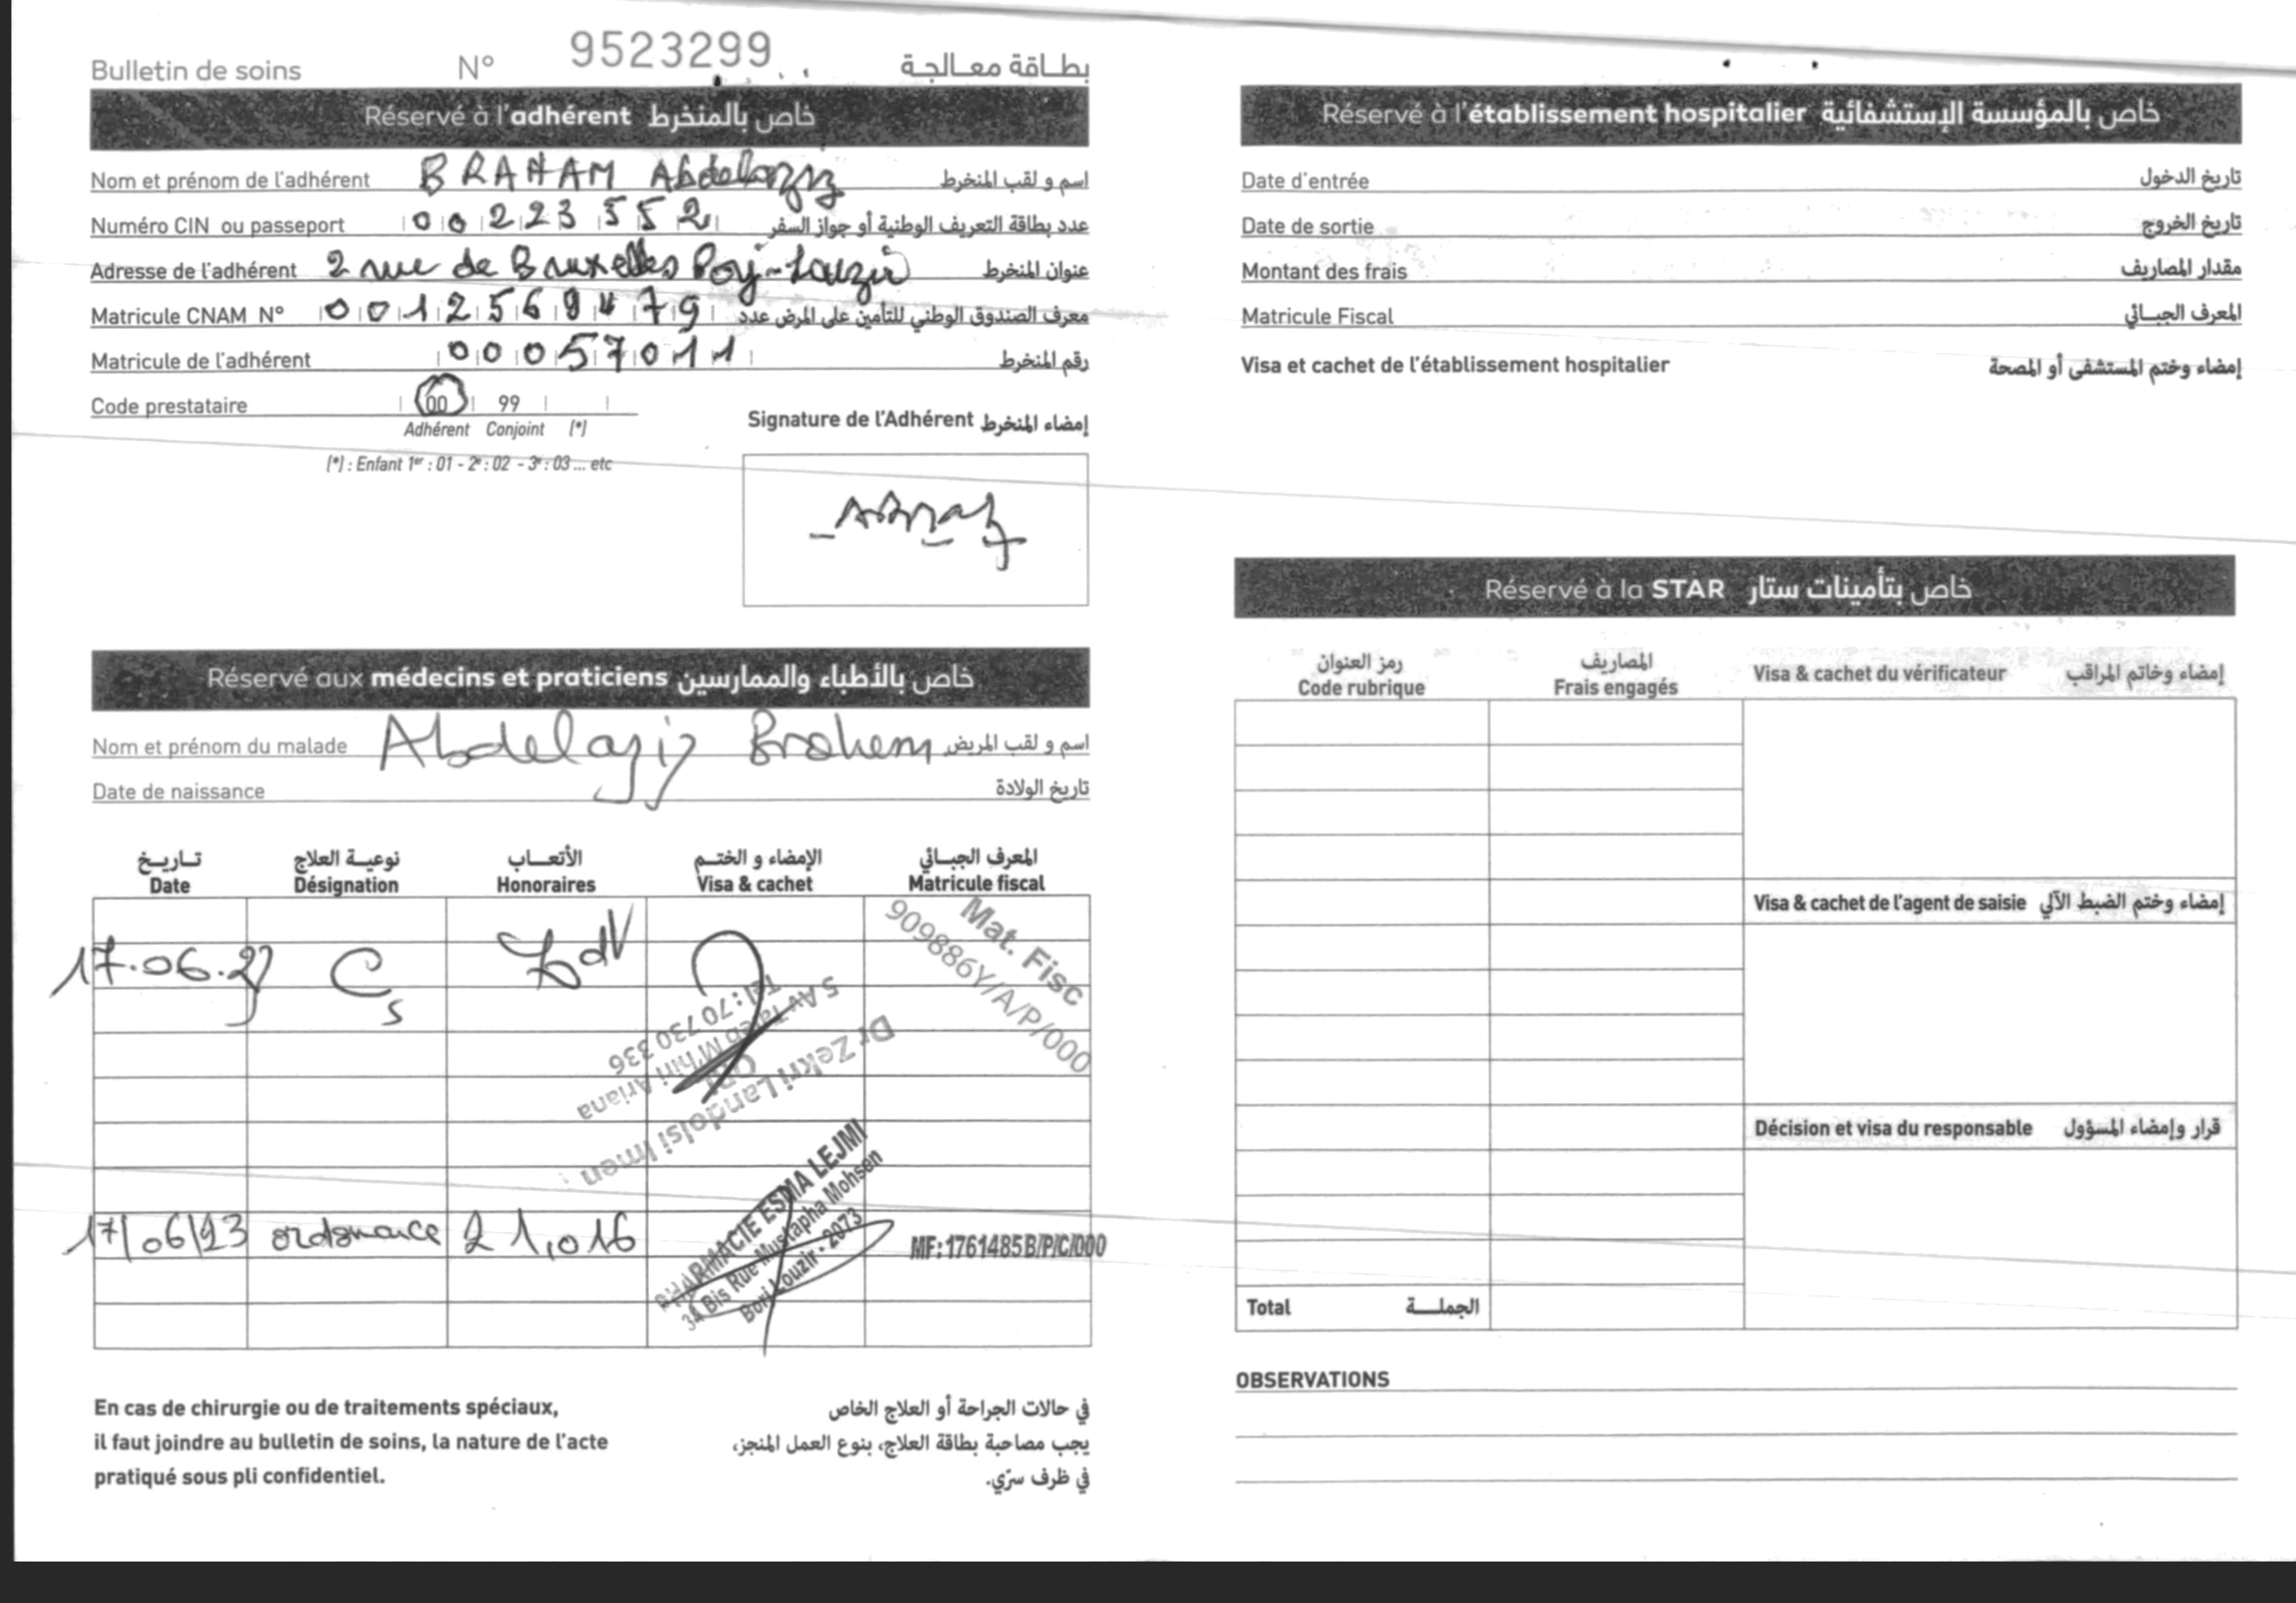 Bulletin de soins N° 9523299 بطاقة معالجة
Réservé à l'adhérent خاص بالمنخرط
Nom et prénom de l'adhérent BRAHAM Abdelaziz اسم و لقب المنخرط
Numéro CIN ou passeport 00223552 عدد بطاقة التعريف الوطنية أو جواز السفر
Adresse de l'adhérent 2 rue de Bruxelles Borj-Louzir عنوان المنخرط
Matricule CNAM N° 0012569479 معرف الصندوق الوطني للتأمين على المرض عدد
Matricule de l'adhérent 00057011 رقم المنخرط
Code prestataire 00 99
Adhérent Conjoint (*)
(*) : Enfant 1er : 01 - 2e : 02 - 3e : 03 ... etc
Signature de l'Adhérent إمضاء المنخرط
Réservé aux médecins et praticiens خاص بالأطباء والممارسين
Nom et prénom du malade Abdelaziz Brahem اسم و لقب المريض
Date de naissance تاريخ الولادة
تاريخ نوعية العلاج الأتعاب الإمضاء و الختم المعرف الجبائي
Date Désignation Honoraires Visa & cachet Matricule fiscal
17.06.23 Cs
Mat. Fisc
909886Y/A/P/000
Dr Zekri Landolsi Imen
5 AV Taieb M'hiri Ariana
Tel : 70 730 336
17/06/23 ordonnance 21,016
PHARMACIE ESMA LEJMI
34 Bis Rue Mustapha Mohsen
Borj Louzir - 2073
MF: 1761485B/P/C/000
En cas de chirurgie ou de traitements spéciaux,
il faut joindre au bulletin de soins, la nature de l'acte
pratiqué sous pli confidentiel.
في حالات الجراحة أو العلاج الخاص
يجب مصاحبة بطاقة العلاج، بنوع العمل المنجز،
في ظرف سرّي.
Réservé à l'établissement hospitalier خاص بالمؤسسة الإستشفائية
Date d'entrée تاريخ الدخول
Date de sortie تاريخ الخروج
Montant des frais مقدار المصاريف
Matricule Fiscal المعرف الجبائي
Visa et cachet de l'établissement hospitalier إمضاء وختم المستشفى أو المصحة
Réservé à la STAR خاص بتأمينات ستار
رمز العنوان المصاريف
Code rubrique Frais engagés Visa & cachet du vérificateur إمضاء وخاتم المراقب
Visa & cachet de l'agent de saisie إمضاء وختم الضبط الآلي
Décision et visa du responsable قرار وإمضاء المسؤول
Total الجملة
OBSERVATIONS